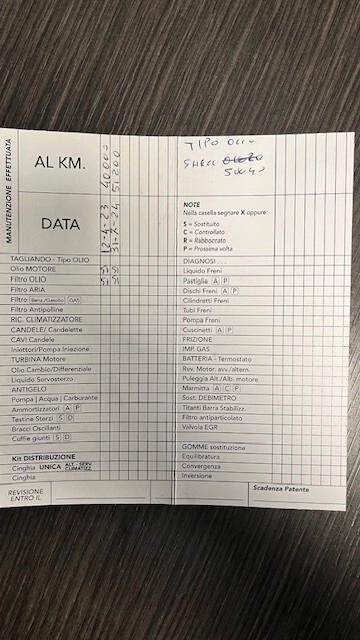 MANUTENZIONE EFFETTUATA
AL KM.
40000
51200
DATA
12-4-23
31-7-24
TAGLIANDO - Tipo OLIO
Olio MOTORE SI SI
Filtro OLIO SI SI
Filtro ARIA
Filtro Benz./Gasolio GAS
Filtro Antipolline
RIC. CLIMATIZZATORE
CANDELE/ Candelette
CAVI Candele
Iniettori/Pompa Iniezione
TURBINA Motore
Olio Cambio/Differenziale
Liquido Servosterzo
ANTIGELO
Pompa | Acqua | Carburante
Ammortizzatori A P
Testine Sterzi S D
Bracci Oscillanti
Cuffie giunti S D
Kit DISTRIBUZIONE
Cinghia UNICA ALT. - SERV. CLIMATIZZ.
Cinghia
REVISIONE
ENTRO IL
TIPO
SHELL
5W40
NOTE
Nella casella segnare X oppure:
S = Sostituito
C = Controllato
R = Rabboccato
P = Prossima volta
DIAGNOSI . . .
Liquido Freni
Pastiglie A P
Dischi Freni A P
Cilindretti Freni
Tubi Freni
Pompa Freni
Cuscinetti A P
FRIZIONE
IMP. GAS
BATTERIA - Termostato
Rev. Motor. avv./altern.
Puleggia Alt./Alb. motore
Marmitta A C P
Sost. DEBIMETRO
Titanti Barra Stabilizz.
Filtro antiparticolato
Valvola EGR
GOMME sostituzione
Equilibratura
Convergenza
Inversione
Scadenza Patente